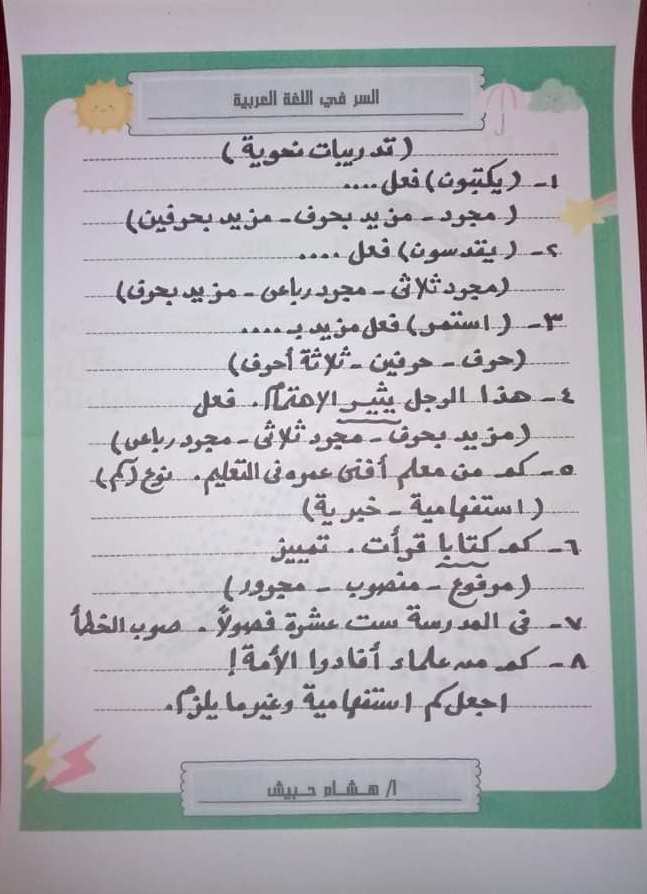 السر في اللغة العربية
(تدريبات نحوية)
١- (يكتبون) فعل ....
(مجرد - مزيد بحرف - مزيد بحرفين)
٢- (يقدسون) فعل ....
(مجرد ثلاثى - مجرد رباعى - مزيد بحرف)
٣- (استمر) فعل مزيد بـ ....
(حرف - حرفين - ثلاثة أحرف)
٤- هذا الرجل يثير الاهتمام. فعل
(مزيد بحرف - مجرد ثلاثى - مجرد رباعى)
٥- كم من معلم أفنى عمره فى التعليم. نوع (كم)
(استفهامية - خبرية)
٦- كم كتابا قرأت. تمييز
(مرفوع - منصوب - مجرور)
٧- فى المدرسة ست عشرة فصولاً. صوب الخطأ
٨- كم من علماء أفادوا الأمة!
اجعل كم استفهامية وغير ما يلزم.
أ/ هشام حبيش